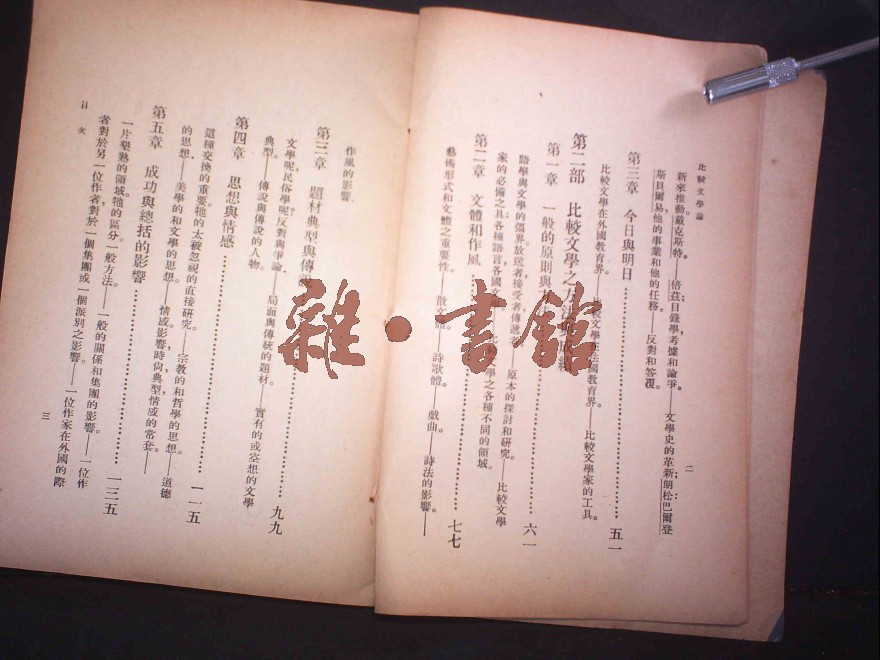 比較文學論
二
新來推動戴克斯特。——倍茲;目錄學,考據和論爭。——文學史的革新;朗松;巴爾登
斯貝爾易,他的事業和他的任務。——反對和答覆。
第三章 今日與明日……五一
比較文學在外國教育界。——較文學在法國教育界。——比較文學家的工具。
第二部 比較文學之方法
第一章 一般的原則與……六一
語學與文學的疆界。放送者,接受者,傳遞者。——原本的探討和研究。——比較文學
家的必備之具:各種語言,各國文——比較文學之各種不同的領域。
第二章 文體和作風……七七
藝術形式和文體之重要性。——散體。——詩歌體。——戲曲。——詩法的影響。——
作風的影響
第三章 題材典型與傳說……九九
文學呢,民俗學呢?反對與爭論。——局面與傳統的題材。——實有的或空想的文學
典型。——傳說與傳說的人物。
第四章 思想與情感……一一五
這種交換的重要。牠的太被忽視的直接研究。——宗教的和哲學的思想。——道德
的思想。——美學的和文學的思想。——情感。影響時尚典型,情感的常套。——
第五章 成功與總括的影響……一三五
一片熟的領域。牠的區分。一般方法。——一般的關係和集團的影響。——一位作
者對於另一位作者,對於一個集團或一個派別之影響。——一位作家在外國的際
目次
三
雜·書館